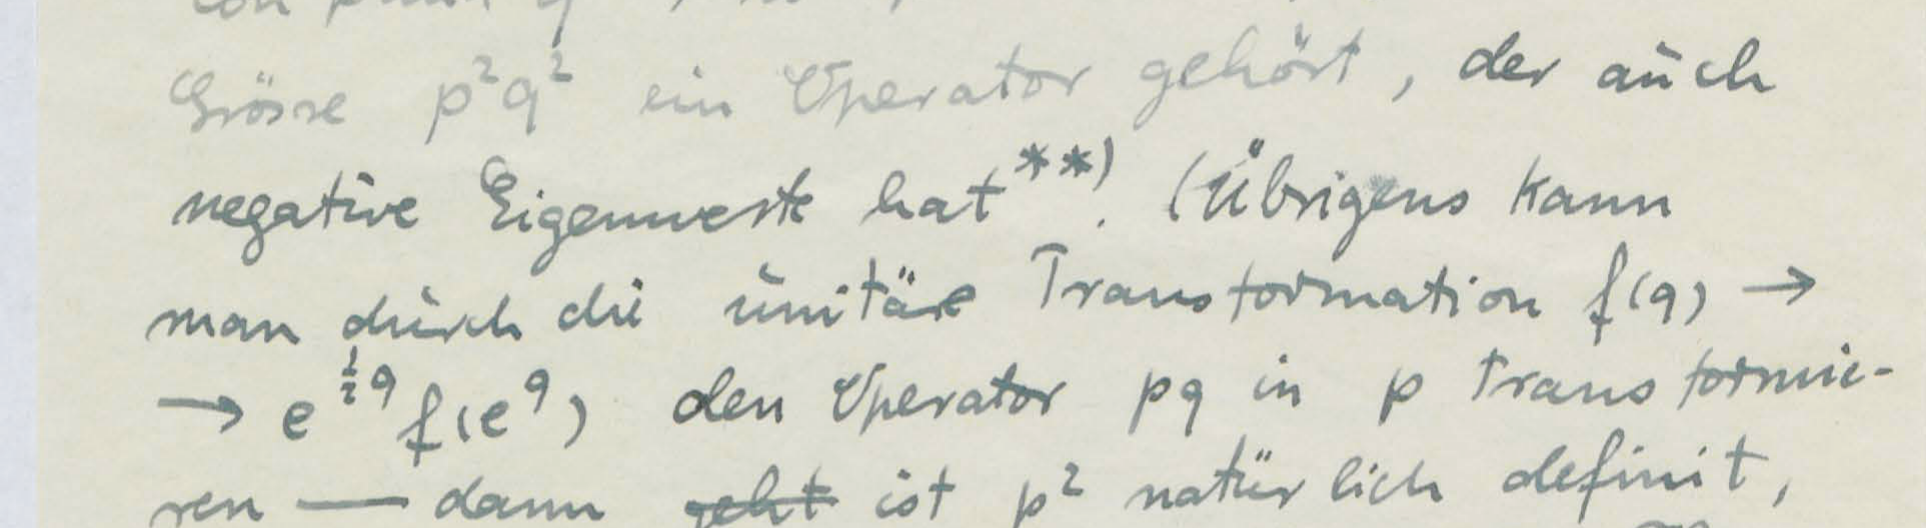 Grösse p²q² ein Operator gehört, der auch
negative Eigenwerte hat**). (Übrigens kann
man durch die unitäre Transformation f(q) →
→ e^{½q} f(e^q) den Operator pq in p transformie-
ren — dann ~~geht~~ ist p² natürlich definit,